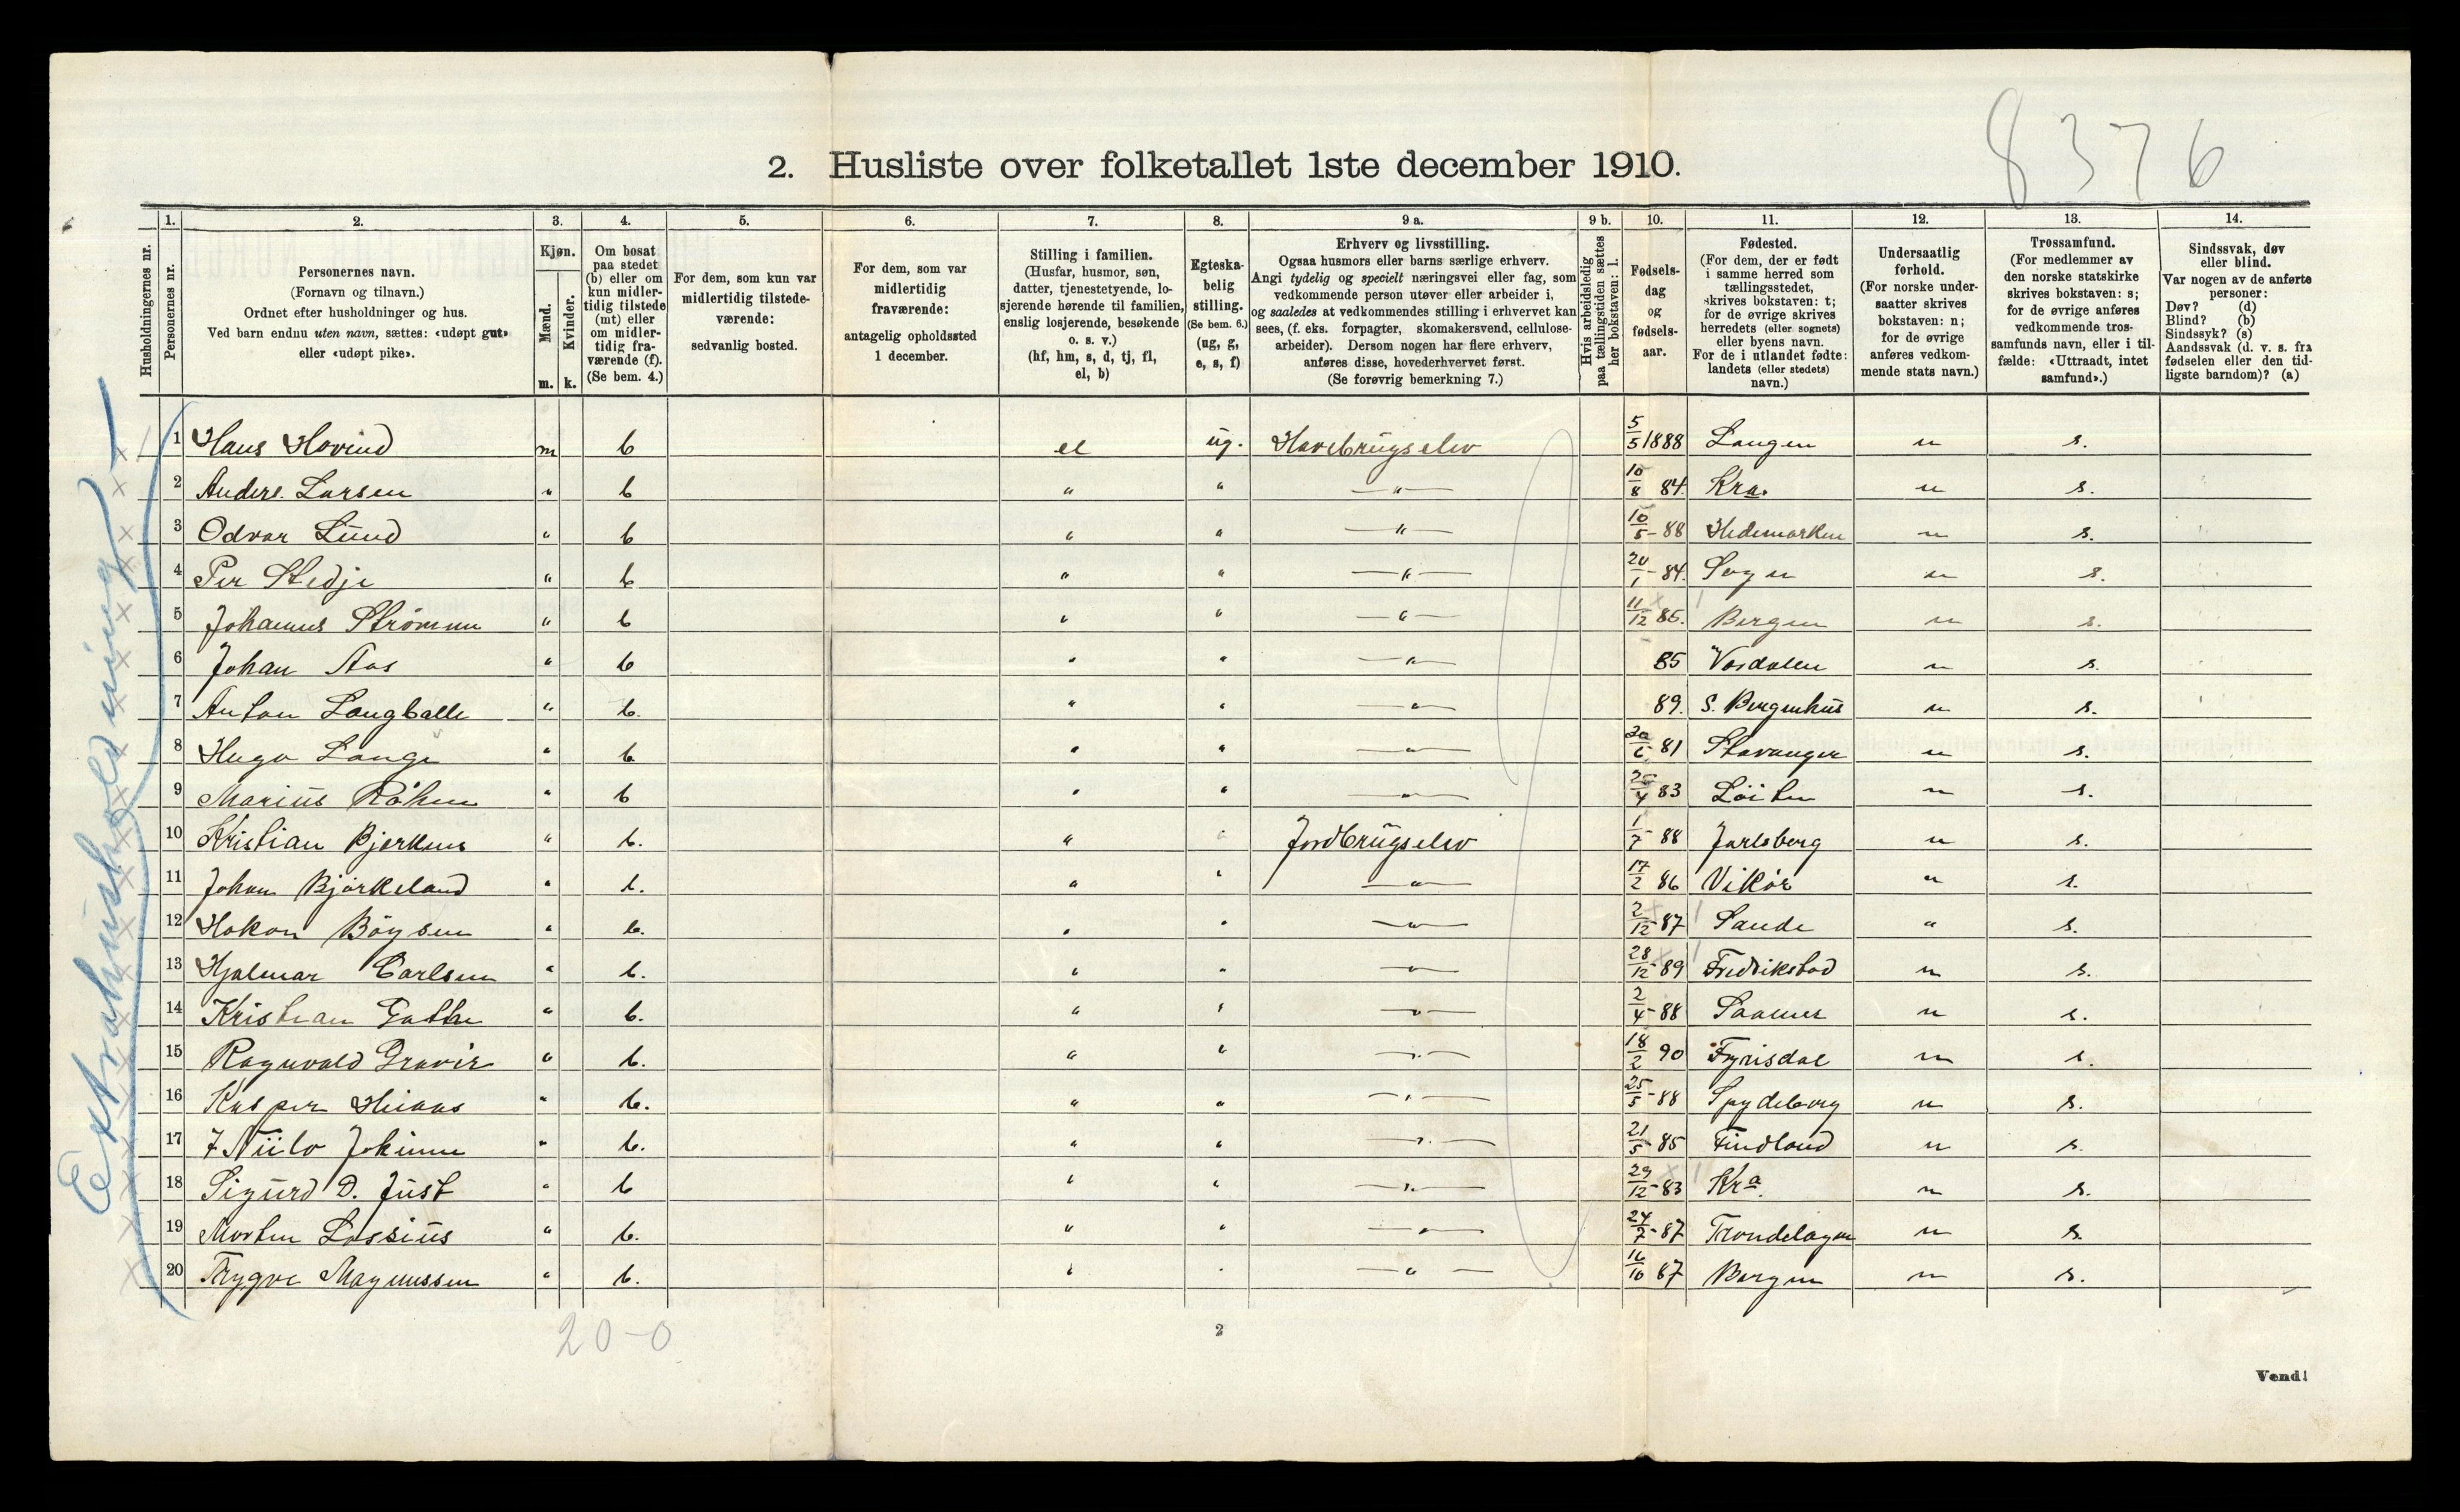 8376
2. Husliste over folketallet 1ste december 1910.
Husholdningernes nr.
1. Personernes nr.
2. Personernes navn. (Fornavn og tilnavn.) Ordnet efter husholdninger og hus. Ved barn endnu uten navn, sættes: «udøpt gut» eller «udøpt pike».
3. Kjøn. Mænd. m. Kvinder. k.
4. Om bosat paa stedet (b) eller om kun midlertidig tilstede (mt) eller om midlertidig fraværende (f). (Se bem. 4.)
5. For dem, som kun var midlertidig tilstedeværende: sedvanlig bosted.
6. For dem, som var midlertidig fraværende: antagelig opholdssted 1 december.
7. Stilling i familien. (Husfar, husmor, søn, datter, tjenestetyende, losjerende hørende til familien, enslig losjerende, besøkende o. s. v.) (hf, hm, s, d, tj, fl, el, b)
8. Egteskabelig stilling. (Se bem. 6.) (ug, g, e, s, f)
9 a. Erhverv og livsstilling. Ogsaa husmors eller barns særlige erhverv. Angi tydelig og specielt næringsvei eller fag, som vedkommende person utøver eller arbeider i, og saaledes at vedkommendes stilling i erhvervet kan sees, (f. eks. forpagter, skomakersvend, cellulosearbeider). Dersom nogen har flere erhverv, anføres disse, hovederhvervet først. (Se forøvrig bemerkning 7.)
9 b. Hvis arbeidsledig paa tællingstiden sættes her bokstaven: l.
10. Fødselsdag og fødselsaar.
11. Fødested. (For dem, der er født i samme herred som tællingsstedet, skrives bokstaven: t; for de øvrige skrives herredets (eller sognets) eller byens navn. For de i utlandet fødte: landets (eller stedets) navn.)
12. Undersaatlig forhold. (For norske undersaatter skrives bokstaven: n; for de øvrige anføres vedkommende stats navn.)
13. Trossamfund. (For medlemmer av den norske statskirke skrives bokstaven: s; for de øvrige anføres vedkommende trossamfunds navn, eller i tilfælde: «Uttraadt, intet samfund».)
14. Sindssvak, døv eller blind. Var nogen av de anførte personer: Døv? (d) Blind? (b) Sindssyk? (s) Aandssvak (d. v. s. fra fødselen eller den tidligste barndom)? (a)
Extrahusholdning
1 Hans Hovind m b el ug. Havebrugselev 5/5 1888 Langen n s.
2 Anders Larsen " b " " — " — 10/8 84. Kra. n s.
3 Odvar Lund " b " " — " — 10/5 - 88 Hedemarken n s.
4 Per Stedje " b " " — " — 20/1 - 84. Sogn n s.
5 Johannes Strømmen " b " " — " — 11/12 85. Bergen n s.
6 Johan Aas " b " " — " — 85 Værdalen n s.
7 Anton Langballe " b. " " — " — 89. S. Bergenhus n s.
8 Hugo Lange " b " " — " — 20/6 81 Stavanger n s.
9 Marius Röhne " b " " — " — 83 Löiten n s.
10 Kristian Bjerknes " b. " " Jordbrugselev 1/7 - 88 Jarlsberg n s.
11 Johan Björkeland " b. " " — " — 17/2 86 Vikör " s.
12 Hakon Böysen " b. " " — " — 2/12 - 87 Sande " s.
13 Hjalmar Carlsen " b. " " — " — 28/12 - 89 Fredriksstad n s.
14 Kristian " b. " " — " — 2/4 - 88 n s.
15 Ragnvald Gravir " b. " " — " — 18/2 90 Fyrisdal n s.
16 Kasper " b. " " — " — 25/5 - 88 Spydeberg n s.
17 Niilo " b. " " — " — 21/5 - 85 Findland n s.
18 Sigurd D. Just " b " " — " — 29/12 - 83 Kra. n s.
19 Morten Lossius " b. " " — " — 24/7 - 87 Trondelagen n s.
20 Trygve Magnussen " b. " " — " — 16/10 87 Bergen n s.
20-0
2
Vend!